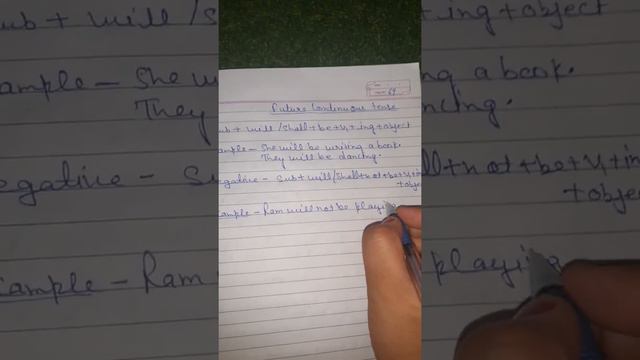 Future Continuous Tense
ub + will / Shall + be + v1 + ing + object
ample - She will be writing a book.
They will be dancing.
egative - Sub + will / Shall + not + be + v1 + in
+ objec
ample - Ram will not be playing